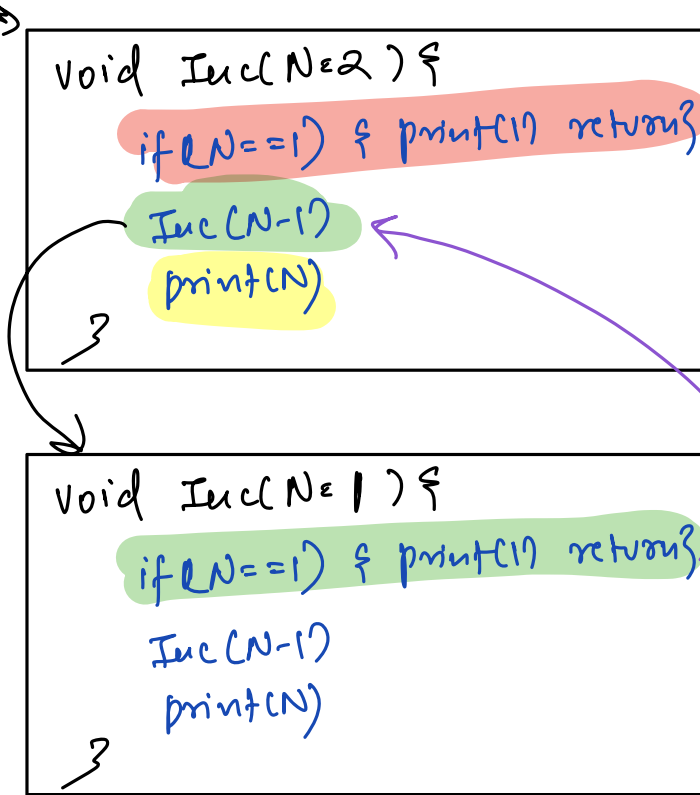 void Inc(N=2) {
if(N==1) { print(1) return}
Inc(N-1)
print(N)
}
void Inc(N=1) {
if(N==1) { print(1) return}
Inc(N-1)
print(N)
}